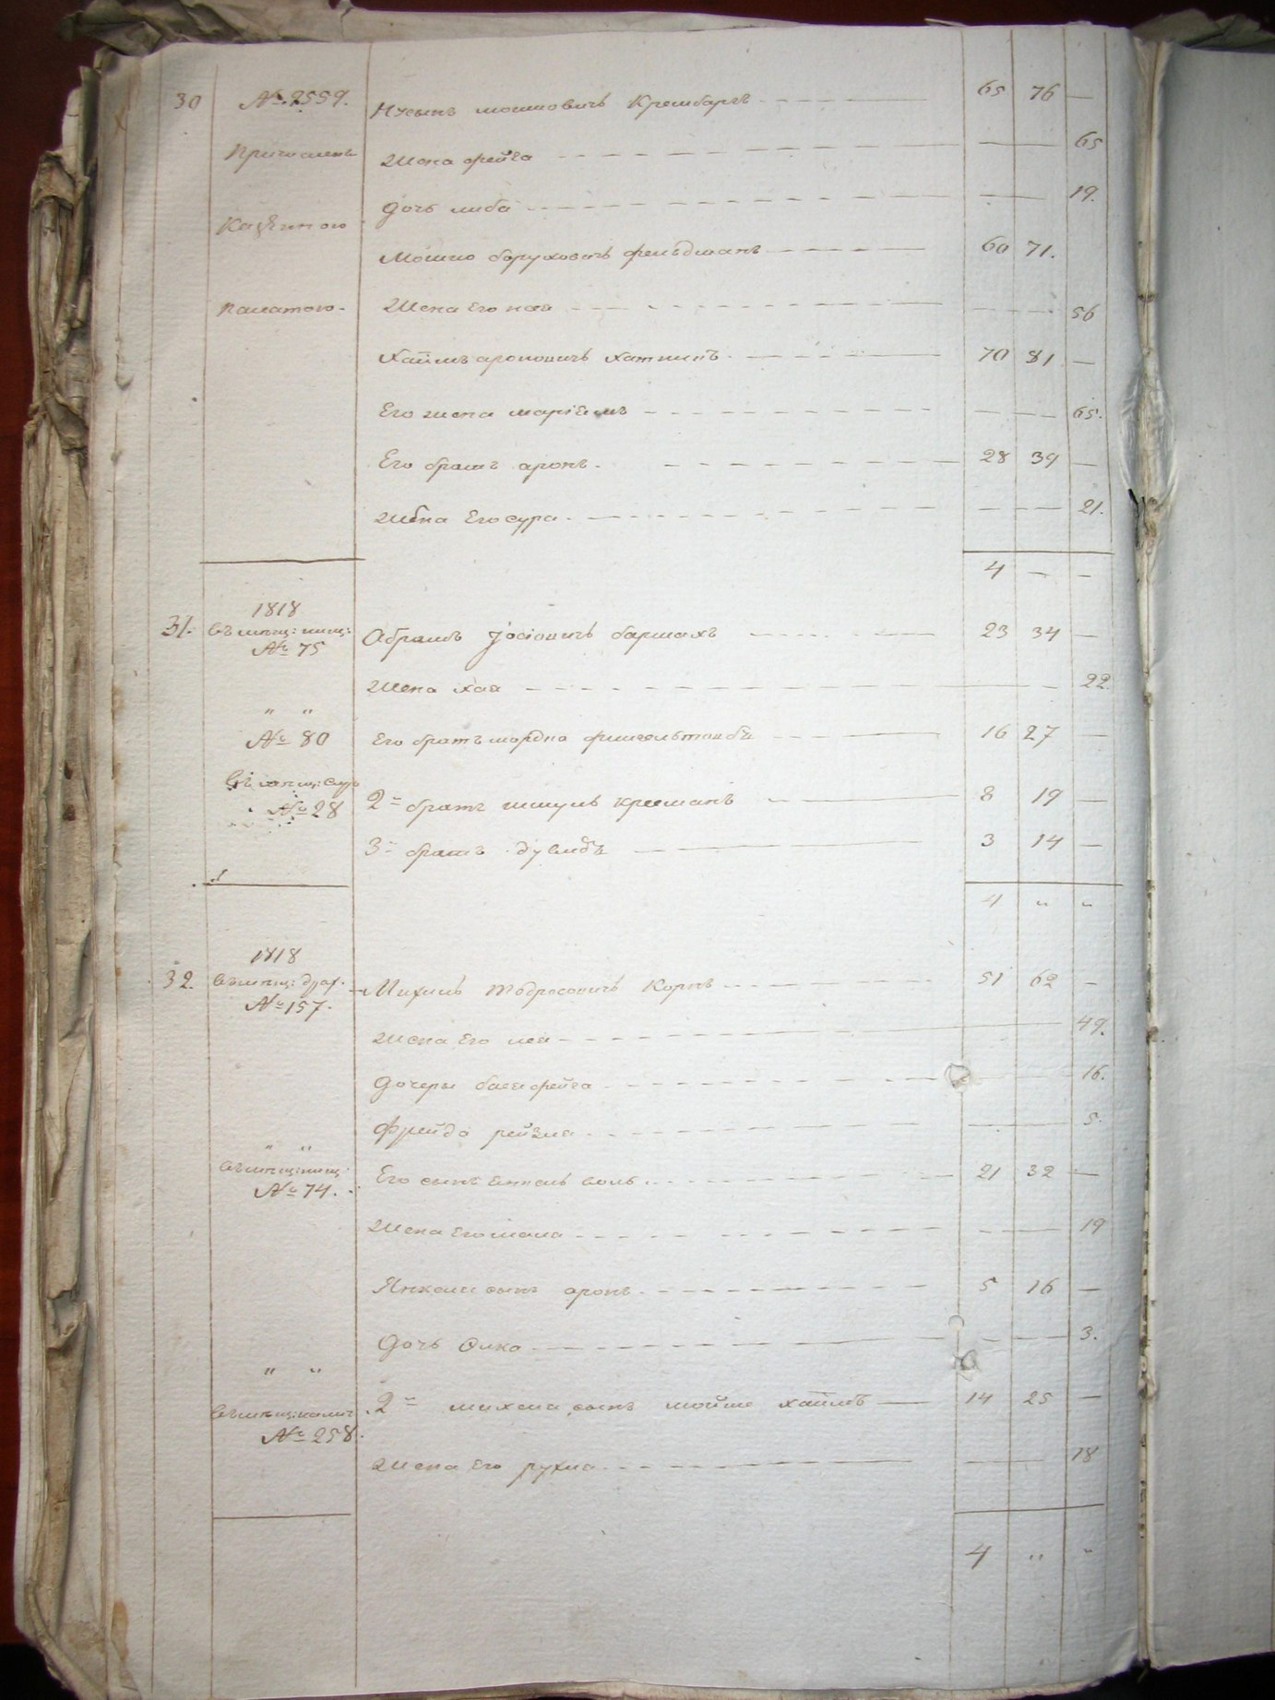 30 № 2559. Нусынъ мошковичъ Крембаргъ 65 76 —
Причисленъ Жена фейга — — 65
дочь либа — — 19.
Казенною
Мошко боруховичъ фельдманъ 60 71.
палатою. Жена Его хая — — 56
Хаимъ ароновичъ Хаткинъ 70 81 —
Его жена маріемъ — — 65.
Его братъ аронъ. 28 39 —
Жена Его сура. — — 21.
4 — —
1818
31. въ мѣщ: № 75 Абрамъ Іосіовичъ бармахъ 23 34 —
Жена хая — — 22
" "
№ 80 Его братъ мордко 16 27 —
въ мѣщ: № 28 2й братъ шмуль крейманъ 8 19 —
3й братъ дувидъ 3 14 —
4 " "
1818
32. въ мѣщ: № 157. Михель тодросовичъ Корнъ 51 62 —
Жена Его лея — — 49.
дочеры бася фейга — — 16.
Фрейда рейзля — — 5.
" "
въ мѣщ: № 74. Его сынъ янкель воль. 21 32 —
Жена Его мала — — 19
Янкеля сынъ аронъ. 5 16 —
дочь Элка — — 3.
" "
въ мѣщ: № 258. 2й михеля сынъ мойше хаимъ 14 25 —
Жена Его рухля — — 18
4 " "